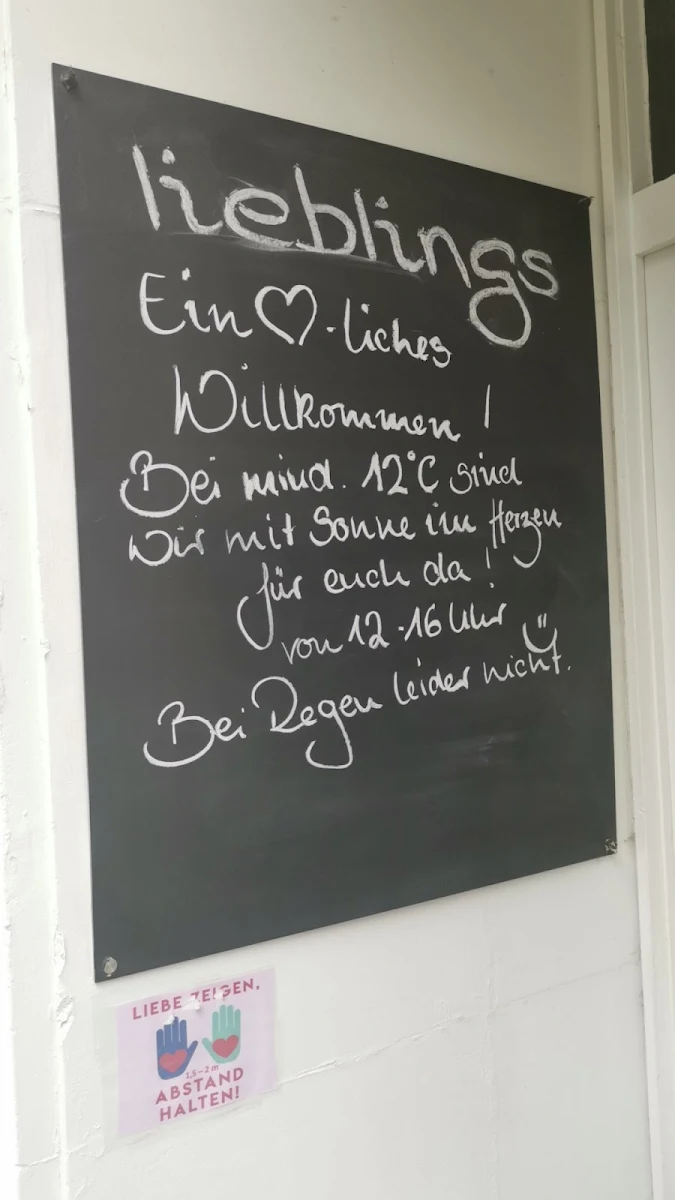 lieblings
Ein ♡-liches
Willkommen!
Bei mind. 12°C sind
wir mit Sonne im Herzen
für euch da!
von 12-16 Uhr
Bei Regen leider nicht.
LIEBE ZEIGEN,
1,5-2 m
ABSTAND
HALTEN!